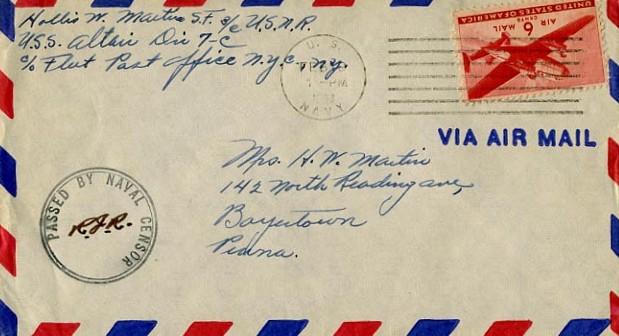 Hollis W. Martin S.F. 2/c U.S.N.R.
U.S.S. Altair Div 7-C
c/o Fleet Post Office N.Y.C. N.Y.
U. S.
PM
NAVY
UNITED STATES OF AMERICA
6 CENTS
AIR MAIL
VIA AIR MAIL
Mrs. H. W. Martin
142 North Reading ave,
Boyertown
Penna.
PASSED BY NAVAL CENSOR
R.J.R.